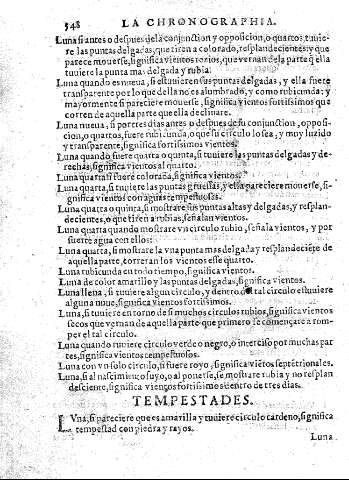 548 LA CHRONOGRAPHIA.
Luna si antes o despues de la conjunction y opposicion, o quartos, tuuie-
re las puntas delgadas, que tiren a colorado, resplandecientes: y que
parece mouerse, significa vientos rezios, que vernan de la parte q̃ ella
tuuiere la punta mas delgada y rubia.
Luna quando es nueua, si estuuieren sus puntas delgadas, y ella fuere
transparente por lo que della no es alumbrado, y como rubicunda: y
mayormente si pareciere mouerse, significa vientos fortissimos que
corren de aquella parte que ella declinare.
Luna nueua, si por tres dias antes o despues de su conjunction, opposi-
cion, o quartos, fuere rubicunda, o que su circulo lo sea, y muy luzido
y transparente, significa fortissimos vientos.
Luna quando fuere quarta o quinta, si tuuiere las puntas delgadas y de-
rechas, significa vientos al quarto.
Luna quarta si fuere coloraña, significa vientos.
Luna quarta, si tuuiere las puntas gruessas, y ella pareciere mouerse, si-
gnifica vientos con aguas tempestuosos.
Luna quarta o quinta, si mostrare sus puntas altas y delgadas, y resplan-
decientes, o que tiren a rubias, señalan vientos.
Luna quarta quando mostrare vn circulo rubio, señala vientos, y por
suerte agua con ellos.
Luna quarta, si mostrare la vna punta mas delgada y resplandeciẽte de
aquella parte, correran los vientos esse quarto.
Luna rubicunda en todo tiempo, significa vientos.
Luna de color amarillo y las puntas delgadas, significa vientos.
Luna llena, si tuuiere algun circulo, y dentro de tal circulo estuuiere
alguna nuue, significa vientos fortissimos.
Luna, si tuuiere en torno de si muchos circulos rubios, significa vientos
secos que vernan de aquella parte que primero se començare a rom-
per el tal circulo.
Luna quando tuuiere circulo verde o negro, o interciso por muchas par-
tes, significa vientos tempestuosos.
Luna con vn solo circulo, si fuere royo, significa viẽtos septẽtrionales.
Luna, si al nascimiento suyo, o al ponerse, se mostrare rubia y no resplan
desciente, significa vientos fortissimo dentro de tres dias.
TEMPESTADES.
LVna, si pareciere que es amarilla y tuuiere circulo cardeno, significa
tempestad con piedra y rayos.
Luna